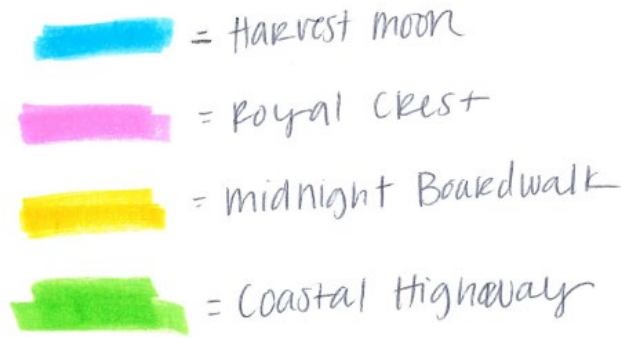 = Harvest moon
= Royal Crest
= midnight Boardwalk
= Coastal Highway